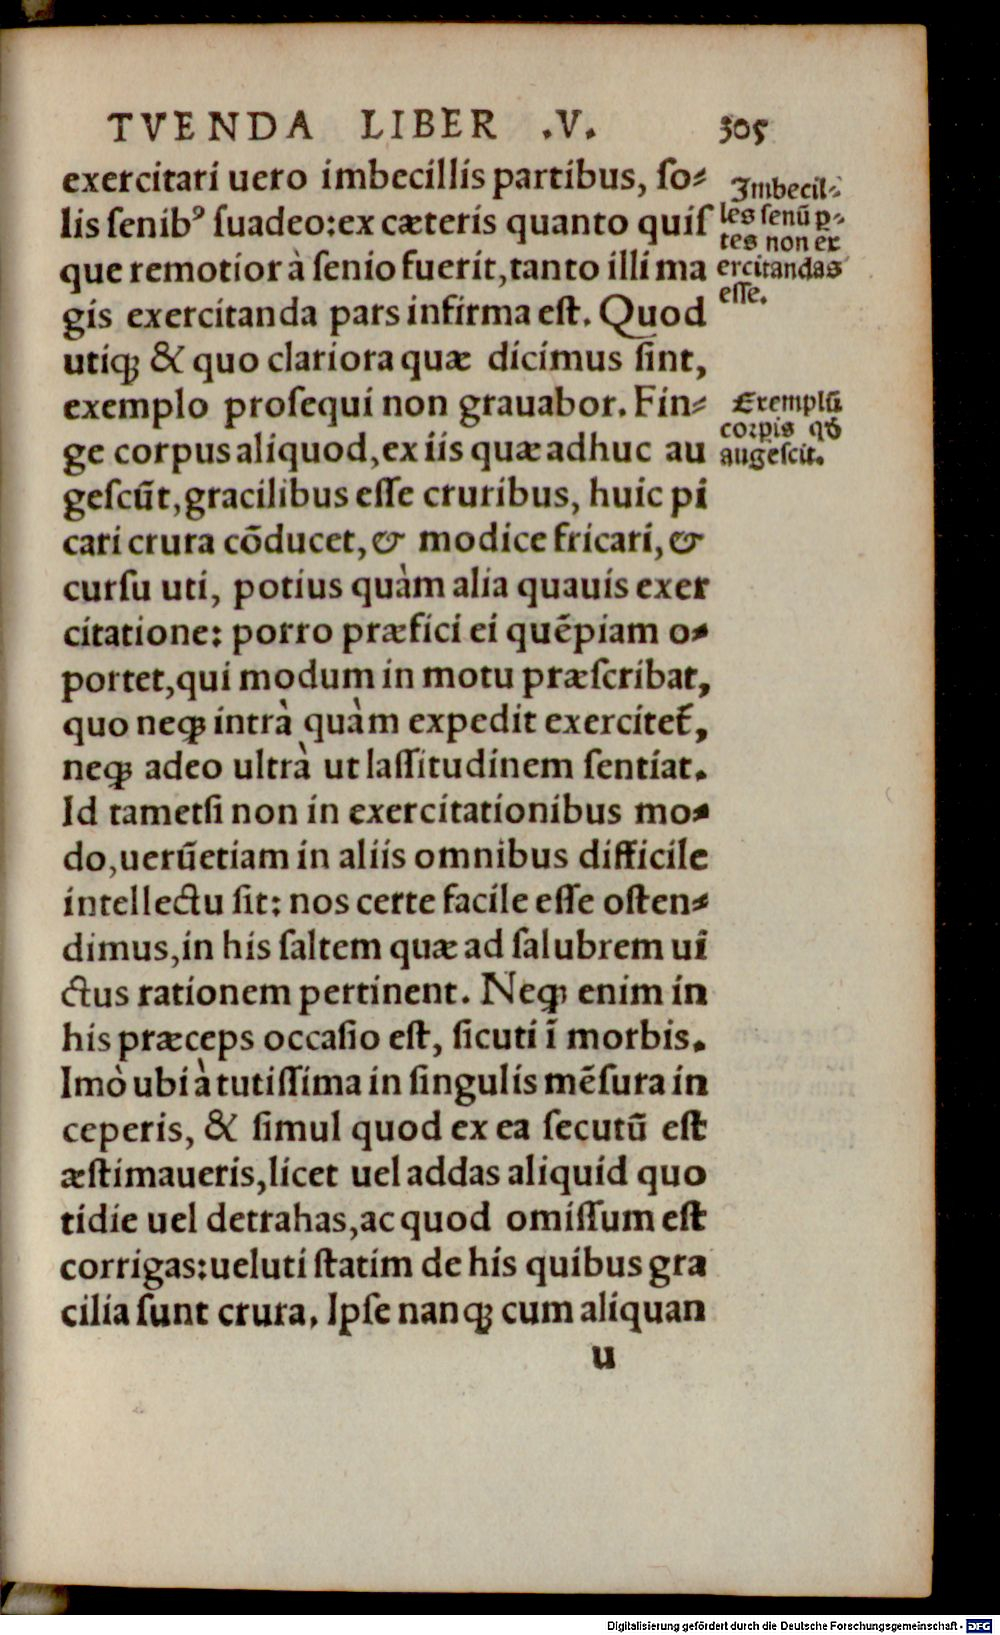 TVENDA LIBER .V. 305
exercitari uero imbecillis partibus, ſo⸗
lis ſenibꝰ ſuadeo: ex cæteris quanto quiſ
que remotior à ſenio fuerit, tanto illi ma
gis exercitanda pars infirma eſt. Quod
utiqꝫ & quo clariora quæ dicimus ſint,
exemplo proſequi non grauabor. Fin⸗
ge corpus aliquod, ex iis quæ adhuc au
geſcūt, gracilibus eſſe cruribus, huic pi
cari crura cōducet, & modice fricari, &
curſu uti, potius quàm alia quauis exer
citatione: porro præfici ei quēpiam o⸗
portet, qui modum in motu præſcribat,
quo neqꝫ intrà quàm expedit exercitet̃,
neqꝫ adeo ultrà ut laſſitudinem ſentiat.
Id tametſi non in exercitationibus mo⸗
do, uerūetiam in aliis omnibus difficile
intellectu ſit: nos certe facile eſſe oſten⸗
dimus, in his ſaltem quæ ad ſalubrem ui
ctus rationem pertinent. Neqꝫ enim in
his præceps occaſio eſt, ſicuti ī morbis.
Imò ubi à tutiſſima in ſingulis mēſura in
ceperis, & ſimul quod ex ea ſecutū eſt
æſtimaueris, licet uel addas aliquid quo
tidie uel detrahas, ac quod omiſſum eſt
corrigas: ueluti ſtatim de his quibus gra
cilia ſunt crura. Ipſe nanqꝫ cum aliquan
u
Imbecil⸗
les ſenū ꝑ⸗
tes non ex
ercitandas
eſſe.
Exemplū
corꝑis qḋ
augeſcit.
Digitalisierung gefördert durch die Deutsche Forschungsgemeinschaft - DFG